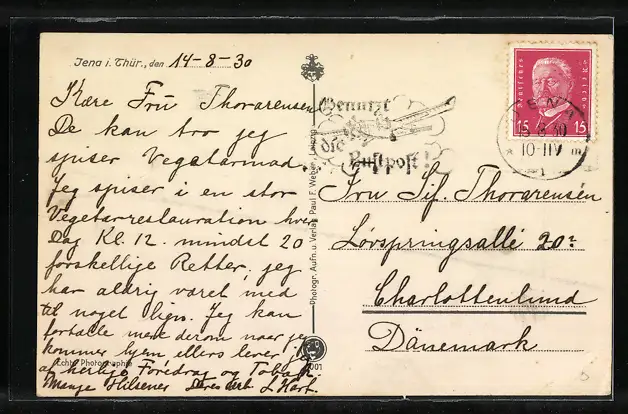 Jena i. Thür., den 14-8-30
Kære Frü Thorarensen
De kan tro jeg
spiser Vegetarmad.
Jeg spiser i en stor
Vegetarrestauration hver
Dag Kl. 12. mindst 20
forskellige Retter, jeg
har aldrig været med
til noget lign. Jeg kan
fortælle mere derom naar jeg
kommer hjem ellers lever jeg
af herlige Foredrag og Tobak.
Mange Hilsener Deres
Echte Photographie
Photogr. Aufn. u. Verlag Paul F. Weber, Leipzig
Benutzt
die
Luftpost!
Deutsches Reich
15 15
JENA
10-11V
Fru Sif. Thorarensen
Løvspringsallé 20
Charlottenlund
Dänemark